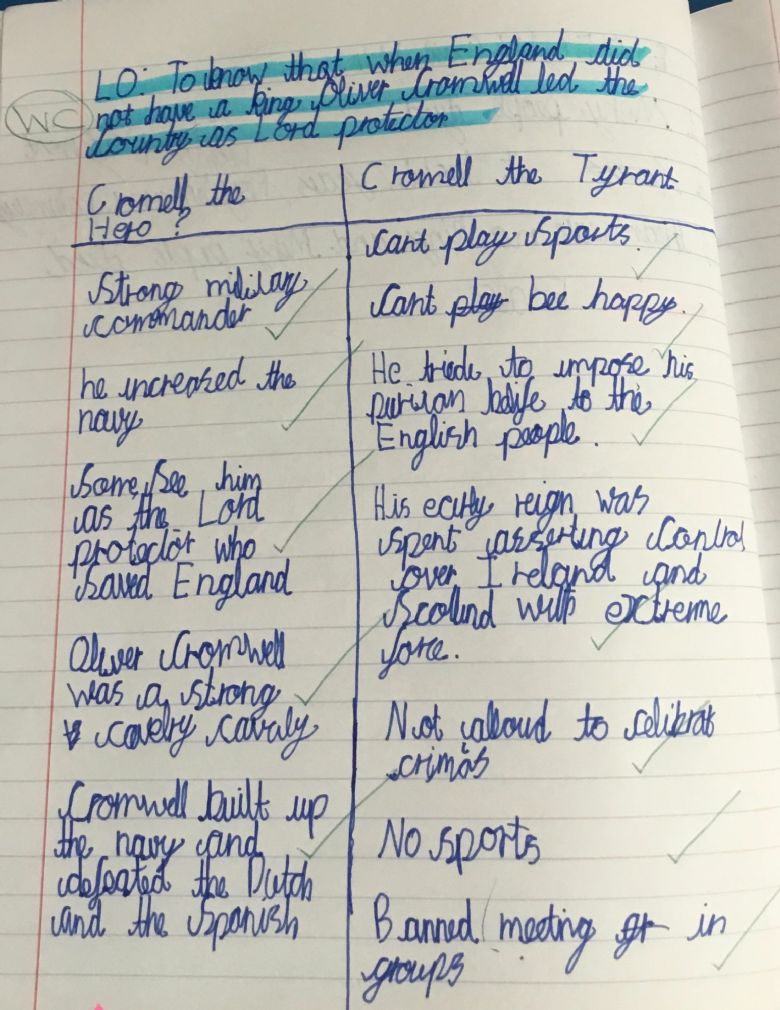 LO: To know that when England did
not have a king Oliver Cromwell led the
WC
country as Lord protector
Cromell the
Hero?
strong military
commander
he increased the
navy
Some see him
as the Lord
protector who
saved England
Oliver Cromwell
was a strong
cavelry cavaly
Cromwell built up
the navy and
defeated the Dutch
and the Spanish
Cromell the Tyrant
Cant play sports.
Cant play bee happy.
He triede to impose his
puritan belife to the
English people.
His early reign was
spent asserting control
over Ireland and
Scotlind with extreme
force.
Not alloud to celibrat
crimas
No sports
Banned meeting gr in
groups